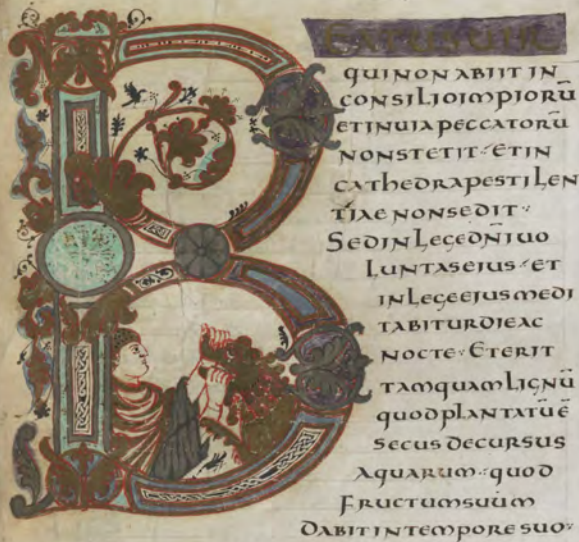 BEATUSUIR
QUINONABIIT IN
CONSILIOIMPIORŪ
ETINUIAPECCATORŪ
NONSTETIT·ETIN
CATHEDRAPESTILEN
TIAENONSEDIT·
SEDINLEGEDN̄IUO
LUNTASEIUS·ET
INLEGEEIUSMEDI
TABITURDIEAC
NOCTE·ETERIT
TAMQUAMLIGNŪ
QUODPLANTATŪĒ
SECUSDECURSUS
AQUARUM·QUOD
FRUCTUMSUUM
DABITINTEMPORESUO·